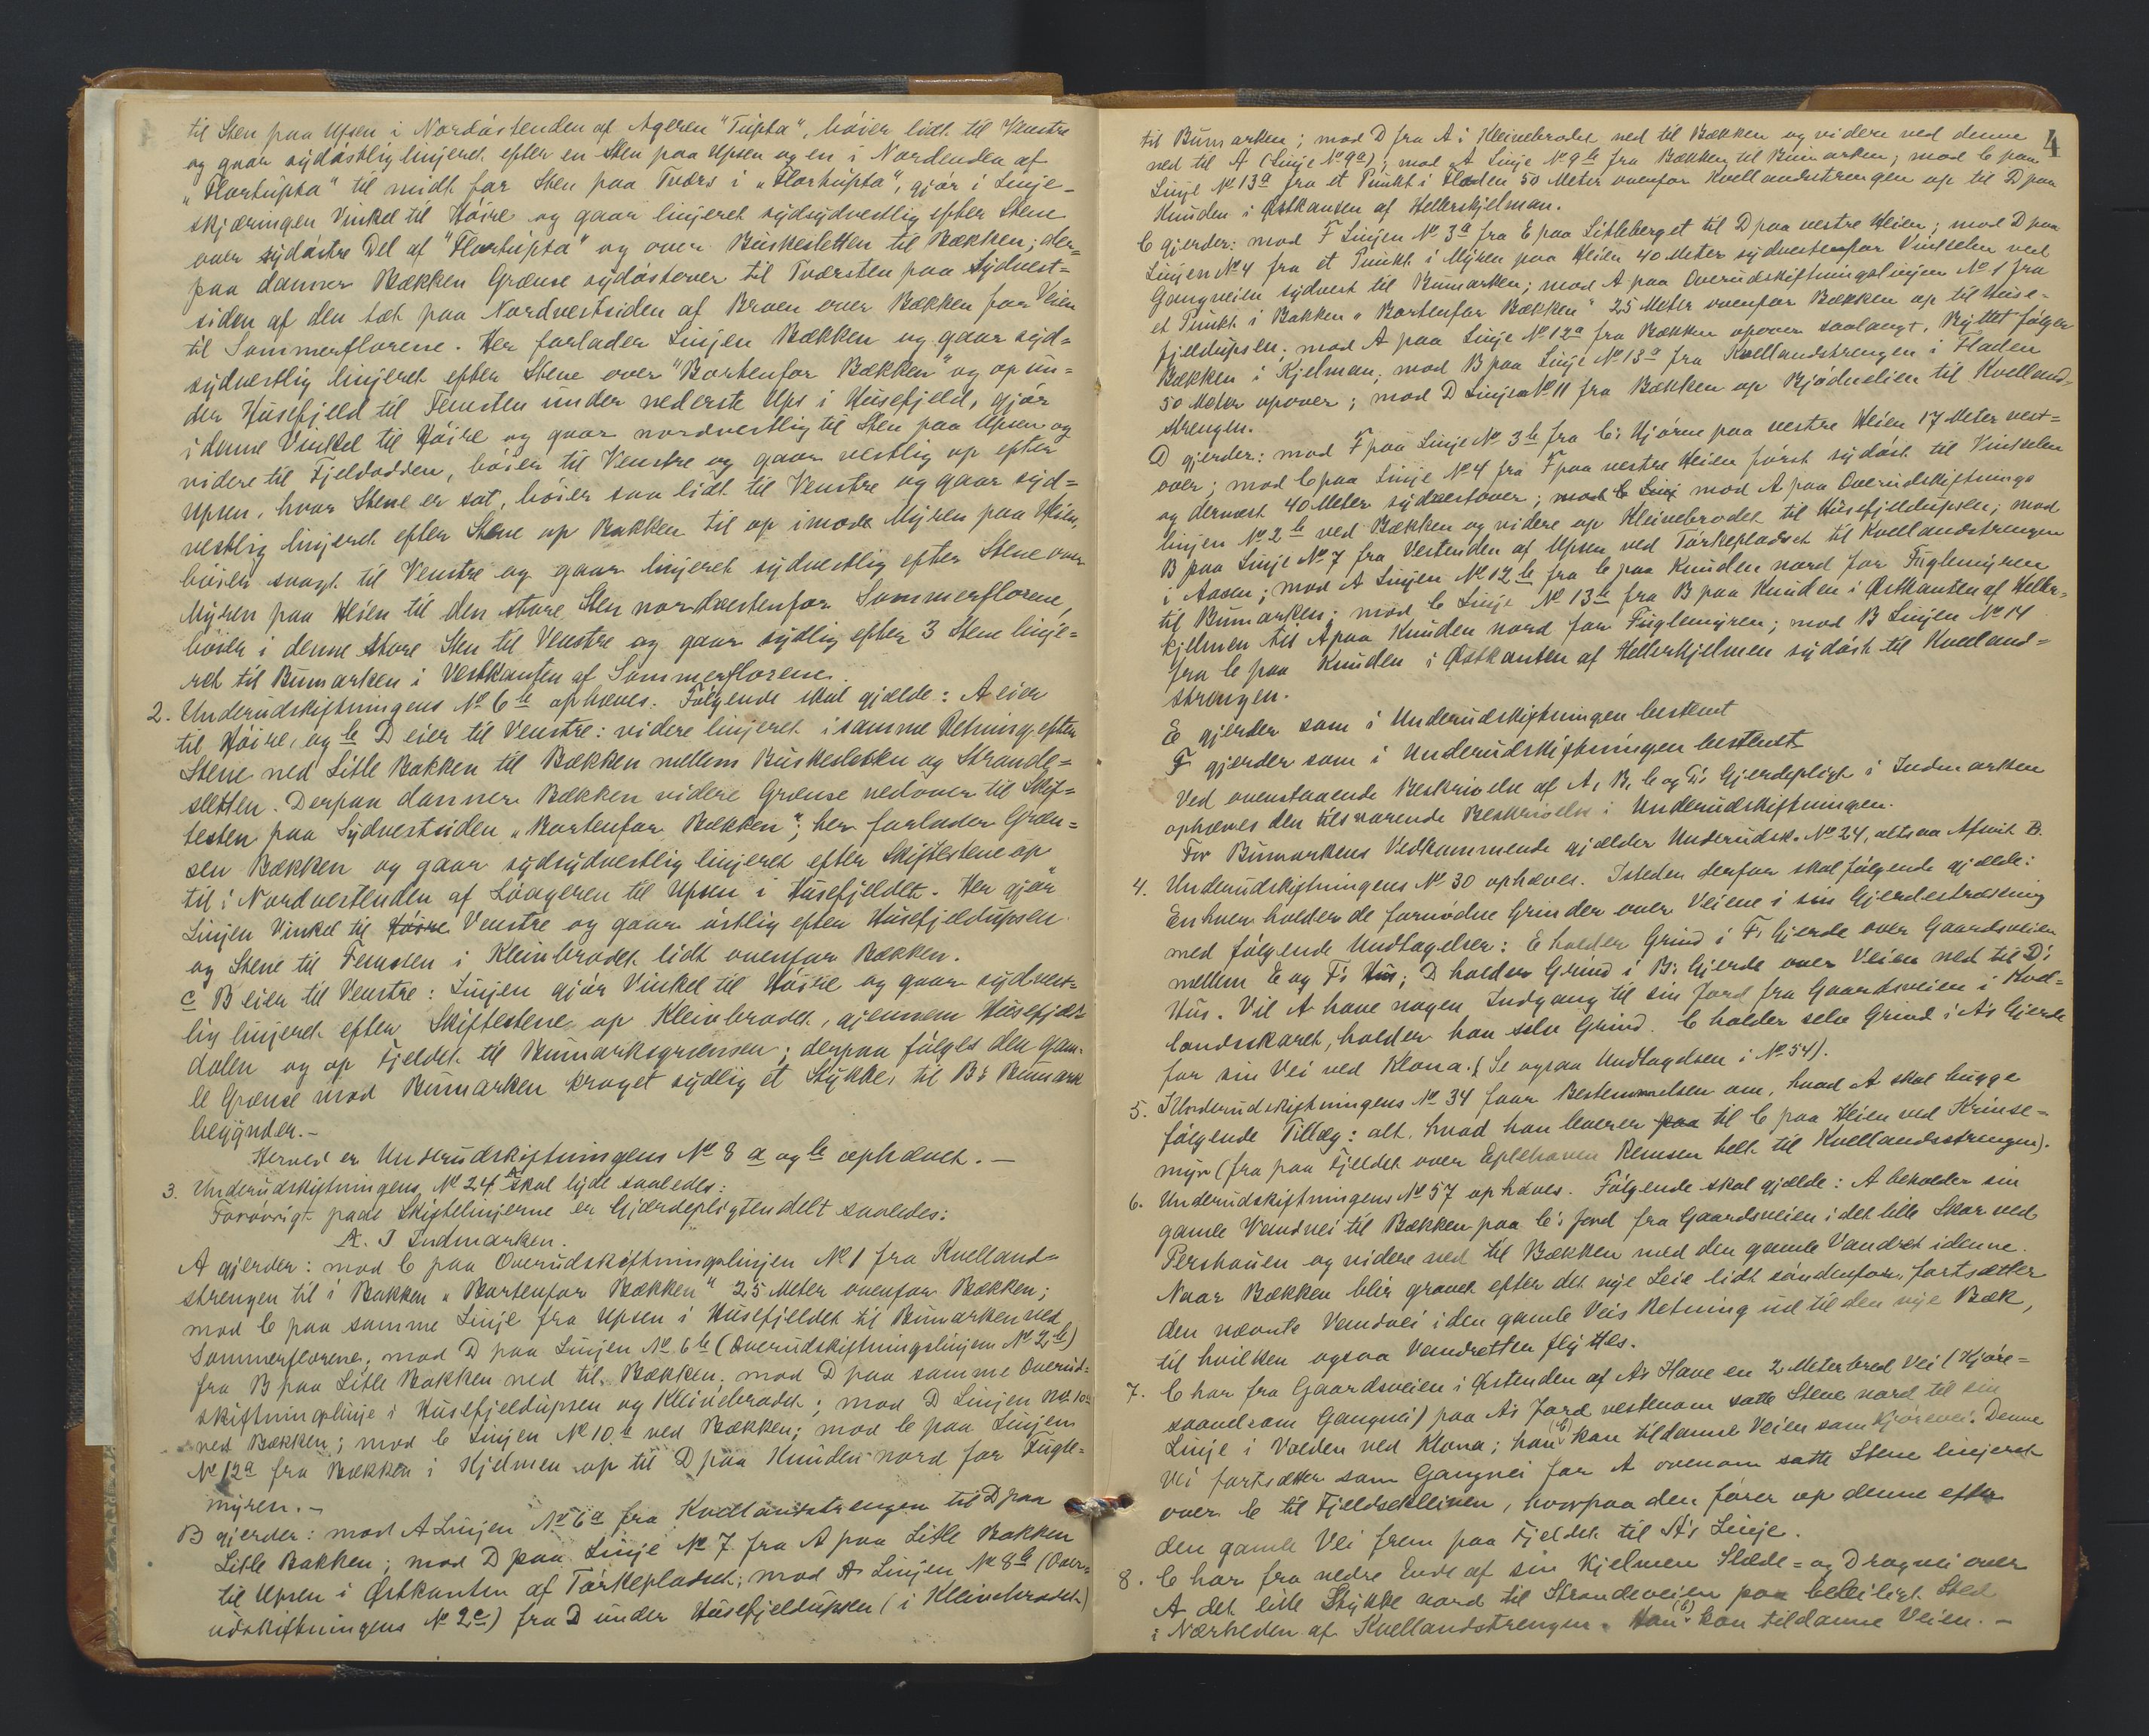 til Sten paa Upsen i Nordøstenden af Ageren "Tufta", bøier lidt til Venstre
og gaar sydøstlig linjeret efter en Sten paa Upsen og en i Nordenden af
"Flortufta" til midt for Sten paa Tværs i "Flortufta", gjør i Linje-
skjæringen Vinkel til Høire og gaar linjeret sydsydvestlig efter Stene
over sydøstre Del af "Flortufta" og over Buskesletten til Bækken; der-
paa danner Bækken Grænse sydøstover til Tværsten paa Sydvest-
siden af den tæt paa Nordvestsiden af Broen over Bækken paa Veien
til Sommerflorene. Her forlader Linjen Bækken og gaar syd-
sydvestlig linjeret efter Stene over "Bortenfor Bækken" og op un-
der Husefjeld til Femsten under nederste Ups i Husefjeld, gjør
i denne Vinkel til Høire og gaar nordvestlig til Sten paa Upsen og
videre til Fjeldodden, bøier til Venstre og gaar vestlig op efter
Upsen, hvor Stene er sat, bøier saa lidt til Venstre og gaar syd-
vestlig linjeret efter Stene op Bakken til op imod Myren paa Heien,
bøier svagt til Venstre og gaar linjeret sydvestlig efter Stene over
Myren paa Heien til den store Sten nordvestenfor Sommerflorene,
bøier i denne store Sten til Venstre og gaar sydlig efter 3 Stene linje-
ret til Bumarken i Vestkanten af Sommerflorene.
2. Underudskiftningens No 6 b ophæves. Følgende skal gjælde: A eier
til Høire, og b D eier til Venstre: videre linjeret i samme Retning efter
Stene ned Litle Bakken til Bækken mellem Buskesletten og Strande-
sletten. Derpaa danner Bækken videre Grænse nedover til Skif-
testen paa Sydvestsiden "Bortenfor Bækken"; her forlader Græn-
sen Bækken og gaar sydsydvestlig linjeret efter Skiftestene op
til i Nordvestenden af Løageren til Upsen i Husefjeldet. Her gjør
Linjen Vinkel til Høire Venstre og gaar østlig efter Husefjeldupsen
og Stene til Femsten i Kleivbrodet lidt ovenfor Bækken.
c B eier til Venstre: Linjen gjør Vinkel til Høire og gaar sydvest-
lig linjeret efter Skiftestene op Kleivbrodet, gjennem Husefjeld-
dalen og op Fjeldet til Bumarksgrænsen; derpaa følges den gam-
le Grænse mod Bumarken kroget sydlig et Stykke, til B's Bumark
begynder.-
Herved er Underudskiftningens No 8 a og b ophævet. -
3. Underudskiftningens No 24 A skal lyde saaledes:
Forøvrigt paa Skiftelinjerne er Gjærdepligten delt saaledes:
A. I Indmarken.
A gjerder: mod C paa Overudskiftningslinjen No 1 fra Kvelland-
strengen til i Bakken "Bortenfor Bækken" 25 Meter ovenfor Bækken;
mod C paa samme Linje fra Upsen i Husefjeldet til Bumarken ved
Sommerflorene; mod D paa Linjen No 6 b (Overudskiftningslinjen No 2 b)
fra B paa Litle Bakken ned til Bækken; mod D paa samme Overud-
skiftningslinje i Husefjeldupsen og Kleivebrodet; mod D Linjen No 10 a
ved Bækken; mod C Linjen No 10 b ved Bækken; mod C paa Linjen
No 12 a fra Bækken i Hjelmen op til D paa Knuden nord for Fugle-
myren.-
B gjerder: mod A Linjen No 6 a fra Kvellandstrengen til D paa
Litle Bakken; mod D paa Linje No 7 fra A paa Litle Bakken
til Upsen i Østkanten af Tørkepladset; mod A Linjen No 8 b (Over-
udskiftningens No 2 c) fra D under Husefjeldupsen (i Kleivebrodet)
4
til Bumarken; mod D fra A i Kleivebrodet ned til Bækken og videre ved denne
ned til A (Linje No 9 a); mod A Linje No 9 b fra Bækken til Bumarken; mod C paa
Linje No 13 a fra et Punkt i Fladen 50 Meter ovenfor Kvellandstrengen op til D paa
Knuden i Østkanten af Hellerskjelman.
C gjerder: mod F Linjen No 3 a fra E paa Litleberget til D paa vestre Heien; mod D paa
Linjen No 4 fra et Punkt i Myren paa Heien 40 Meter sydvestenfor Vinkelen ved
Gangveien sydvest til Bumarken; mod A paa Overudskiftningslinjen No 1 fra
et Punkt i Bakken "Bortenfor Bækken" 25 Meter ovenfor Bækken op til Huse-
fjeldupsen; mod A paa Linje No 12 a fra Bækken opover saalangt, Byttet følger
Bækken i Kjelman; mod B paa Linje No 13 a fra Kvellandstrengen i Fladen
50 Meter opover; mod D Linjen No 11 fra Bækken op Bjødnelien til Kvelland-
strengen.
D gjerder: mod F paa Linje No 3 b fra C's Hjørne paa vestre Heien 17 Meter vest-
over; mod C paa Linje No 4 fra F paa vestre Heien først sydøst til Vinkelen
og dernæst 40 Meter sydvestover; mod C Linj mod A paa Overudskiftnings
linjen No 2 b ved Bækken og videre op Kleivebrodet til Husefjeldupsen; mod
B paa Linje No 7 fra Vestenden af Upsen ved Tørkepladset til Kvellandstrengen
i Aasen; mod A Linjen No 12 b fra C paa Knuden nord for Fuglemyren
til Bumarken; mod C Linje No 13 b fra B paa Knuden i Østkanten af Heller-
kjelmen til A paa Knuden nord for Fuglemyren; mod B Linjen No 14
fra C paa Knuden i Østkanten af Hellerkjelmen sydøst til Kvelland-
strengen.
E gjerder som i Underudskiftningen bestemt
F gjerder som i Underudskiftningen bestemt
Ved ovenstaaende Beskrivelse af A, B, C og D's Gjerdepligt i Indmarken
ophæves den tilsvarende Beskrivelse i Underudskiftningen.
For Bumarkens Vedkommende gjælder Underudsk. No 24, altsaa Afsnit B.
4. Underudskiftningens No 30 ophæves. Isteden derfor skal følgende gjælde:
Enhver holder de fornødne Grinder over Veiene i sin Gjerdestrækning
med følgende Undtagelser: E holder Grind i F's Gjerde over Gaardsveien
mellem E og F's Hus; D holder Grind i B's Gjerde over Veien ned til D's
Hus. Vil A have nogen Indgang til sin Jord fra Gaardsveien i Kvel-
landsskaret, holder han selv Grind. C holder selv Grind i A's Gjerde
for sin Vei ved Klona. (Se ogsaa Undtagelsen i No 54).
5. I Underudskiftningens No 34 faar Bestemmelsen om, hvad A skal bygge
følgende Tillæg: alt, hvad han leverer paa til C paa Heien ved Krinse-
myr (fra paa Fjeldet over Eplehaven Remsen helt til Kvellandsstrengen).
6. Underudskiftningens No 57 ophæves. Følgende skal gjælde: A beholder sin
gamle Vandvei til Bækken paa C's Jord fra Gaardsveien i det lille Skar ved
Pershauen og videre ned til Bækken med den gamle Vandret i denne.
Naar Bækken blir gravet efter det nye Leie lidt søndenfor, fortsætter
den nævnte Vandvei i den gamle Veis Retning ud til den nye Bæk,
til hvilken ogsaa Vandretten flyttes.
7. C har fra Gaardsveien i Østenden af A's Have en 2 Meter bred Vei (Kjøre-
saavelsom Gangvei) paa A's Jord vestenom satte Stene nord til sin
Linje i Volden ved Klona; han (C) kan tildanne Veien som Kjørevei. Denne
Vei fortsætter som Gangvei for A ovenom satte Stene linjeret
over C til Fjeldsekleiven, hvorpaa den fører op denne efter
den gamle Vei frem paa Fjeldet til A's Linje.
8. C har fra nedre Ende af sin Kjelmen Slæde- og Dragvei over
A det lille Stykke nord til Strandeveien paa beleiligt Sted
i Nærheden af Kvellandstrengen. Han (C) kan tildanne Veien. -